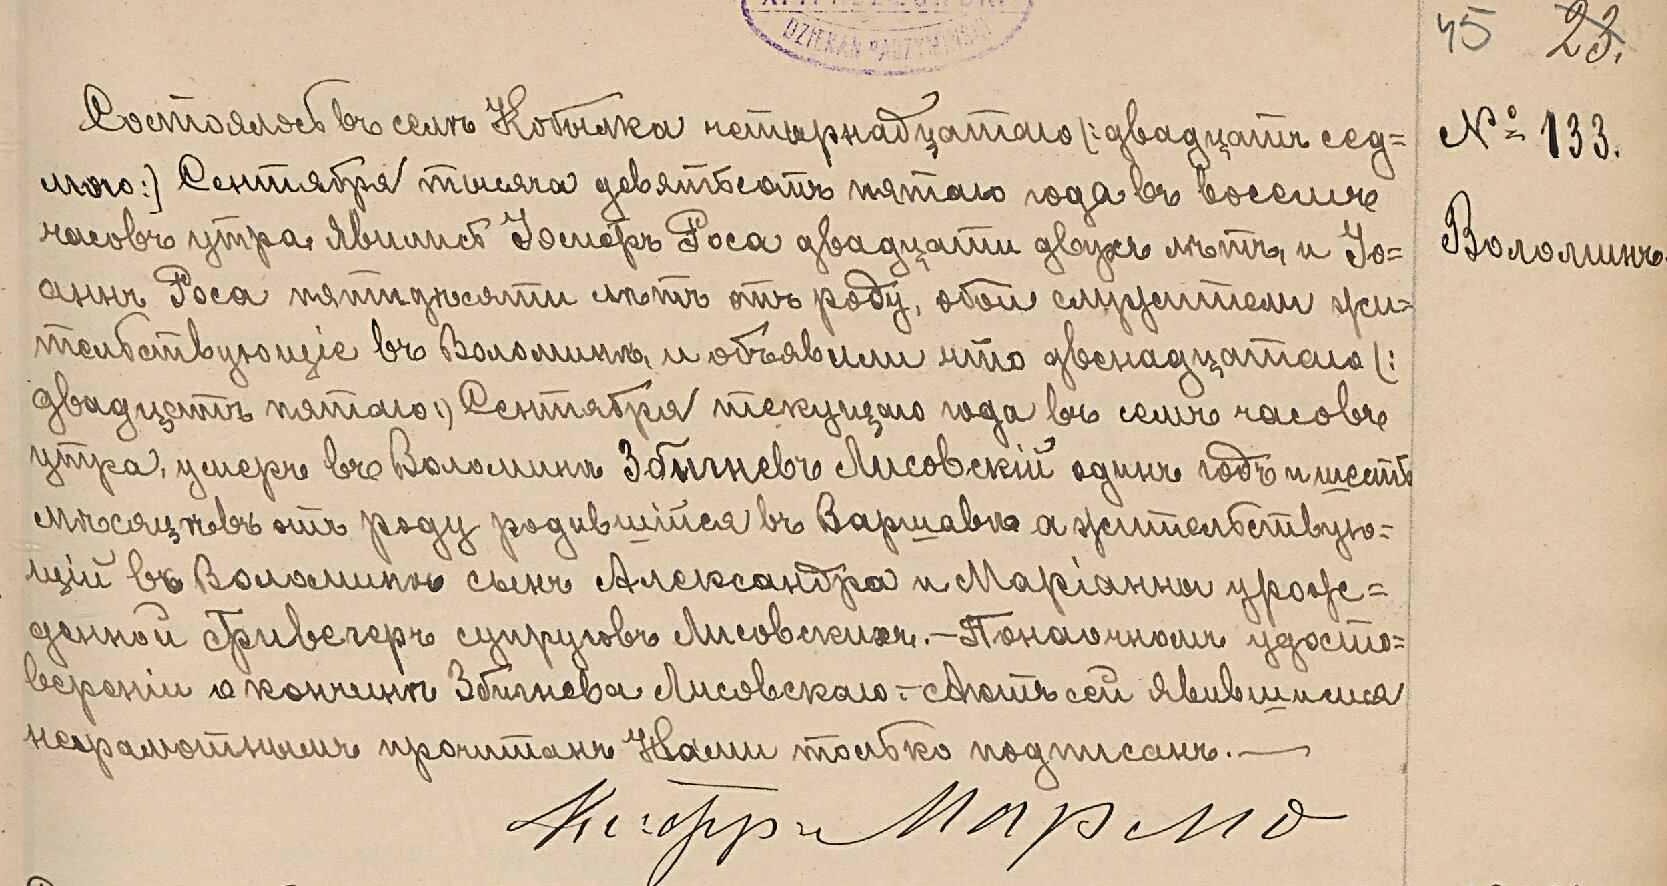 DZIEKAN RADZYMIŃSKI
45 23.
Состоялось въ селѣ Кобылка четырнадцатаго (:двадцать сед=
№ 133.
мого:) Сентября тысяча девятьсотъ пятаго года въ восемь
Воломинъ.
часовъ утра, явились Іосифъ Роса двадцати двухъ лѣтъ, и Іо=
аннъ Роса пятидесяти лѣтъ отъ роду, оба служители жи=
тельствующіе въ Воломинѣ, и объявили что двенадцатаго (:
двадцать пятаго:) Сентября текущаго года въ семь часовъ
утра, умеръ въ Воломинѣ Збигневъ Лисовскій одинъ годъ и шесть
мѣсяцевъ отъ роду родившійся въ Варшавѣ а жительствую=
щій въ Воломинѣ сынъ Александра и Маріанны урож=
денной Гривегеръ супруговъ Лисовскихъ. — По наочномъ удосто=
вереніи о кончинѣ Збигнева Лисовскаго. — Актъ сей явившимся
неграмотнымъ прочитанъ Нами только подписанъ. —